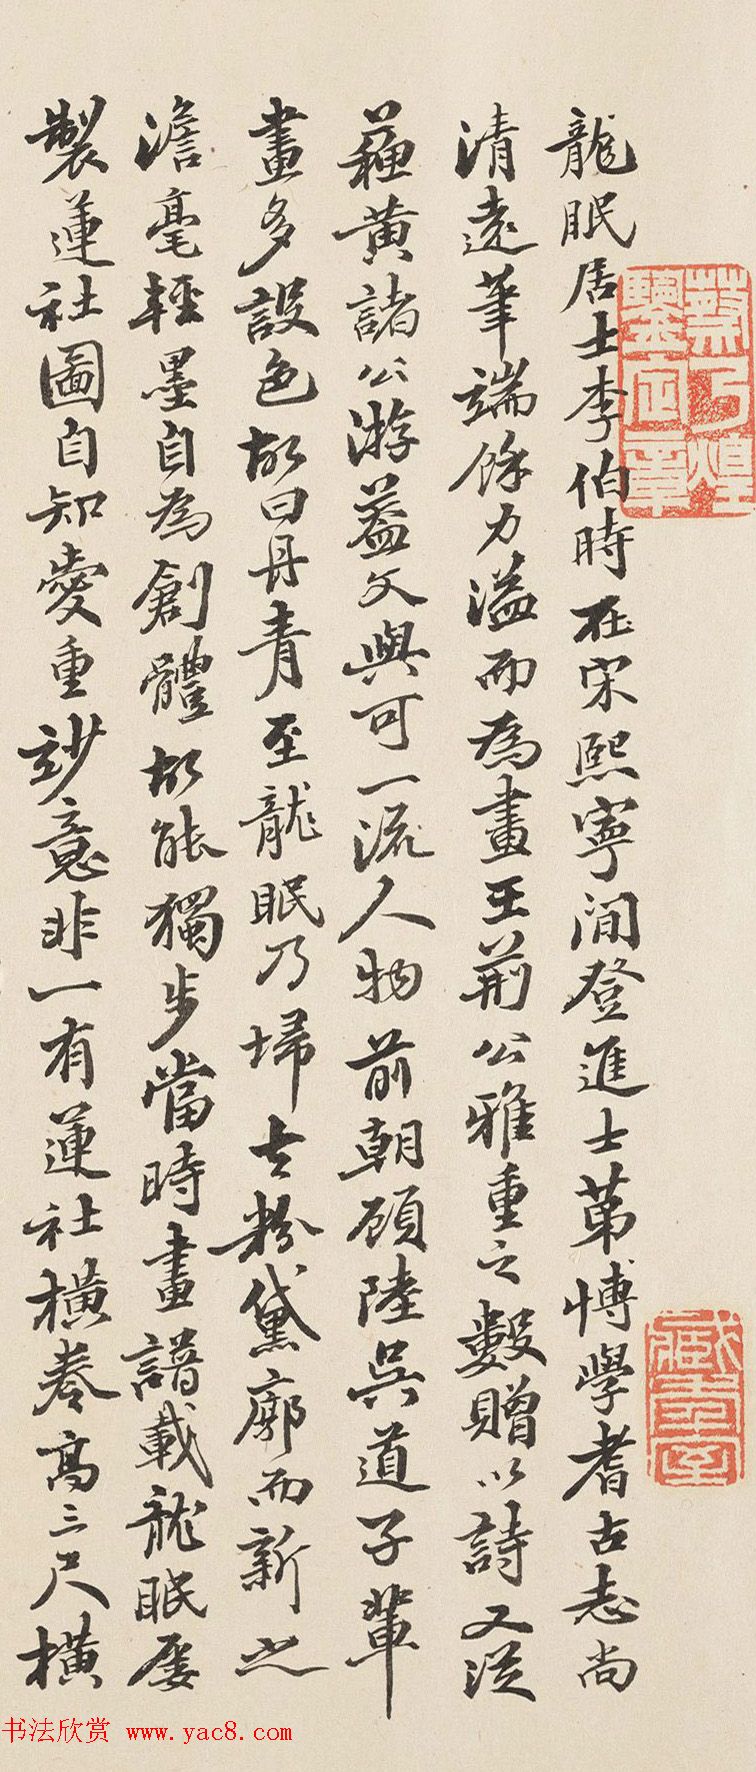 龍眠居士李伯時在宋熙寧間登進士第博學耆古志尚
清遠筆端餘力溢而為畫王荊公雅重之數贈以詩又從
蘓黃諸公游葢文與可一流人物前朝顧陸吳道子輩
畫多設色故曰丹青至龍眠乃埽去粉黛廓而新之
澹毫輕墨自為創體故能獨步當時畫譜載龍眠屢
製蓮社圖自知愛重妙意非一有蓮社橫卷高三尺橫
蔡乃煌
鑒定章
书法欣赏 www.yac8.com